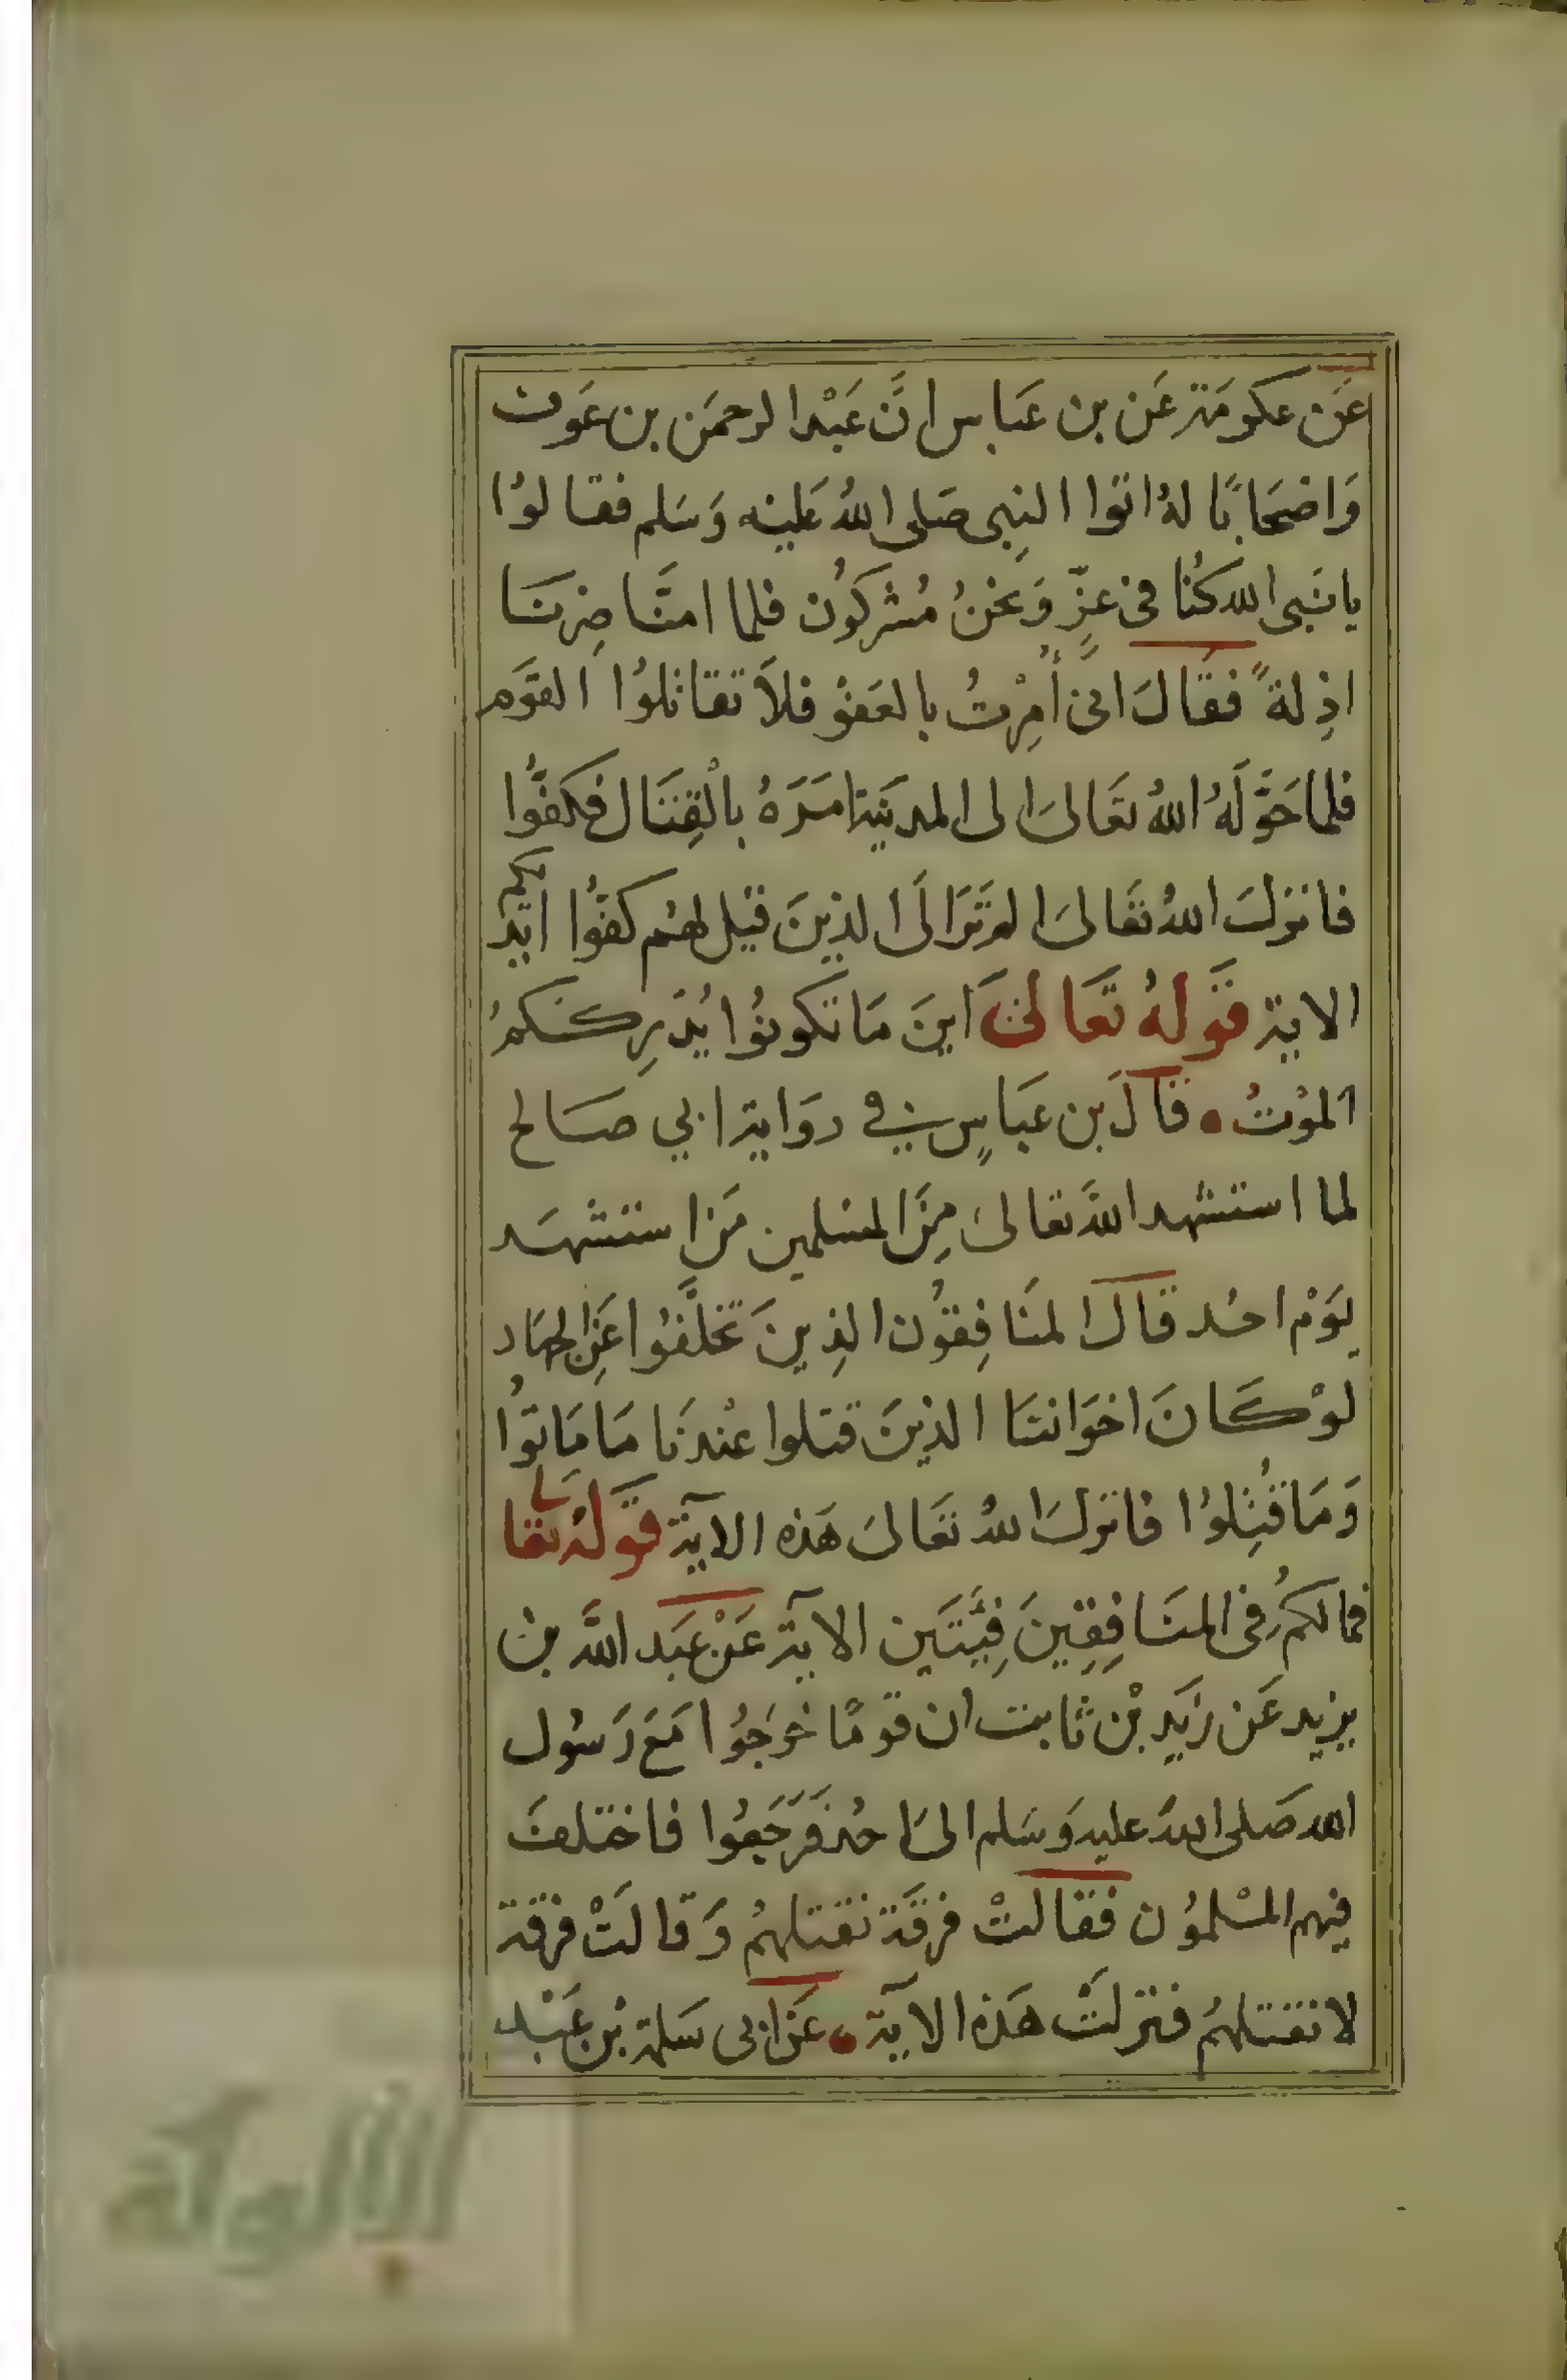 عَن عكرمَة عَن بن عَباس انَّ عَبْد الرحمَن بن عَوف
وَاصْحَابًا لهُ اتوا النبِى صَلى اللهُ عَليْه وَسَلم فقالوُا
يا نَبى الله كنُا فى عِزٍّ وَنحْنُ مُشركوُن فلما امنَّا صِرنَا
اذِلةً فقَالَ انى أُمِرْتُ بالعَفوْ فلاَ تقاتلوُا القوَم
فلما حَوَّلَهُ اللهُ تعَالىَ الى المدينَة امَرَهُ بالْقِتَال فكفوُّا
فانزلَ اللهُ تعَالىَ الم تَرَ الَى الذِينَ قيْل لهُم كفوُّا ايْديكم
الاية قوَلهُ تعَالىَ اينَ مَا تكونوُا يُدْرِككمُ
الموْتُ • قالَ بن عَباسٍ في رِوَاية ابي صَالح
لما استشهد اللهَ تعالىَ مِنَ المسْلمين مَن استشهَد
يوَمْ احُد قالَ المنَافِقوُن الذِينَ تخَلَّفوُا عَنِ الجهَاد
لوْ كَانَ اخوَاننَا الذينَ قتلوا عنْدنَا مَا مَاتوُا
وَمَا قُتِلوُا فانزلَ اللهُ تعَالىَ هَذه الاَيَة قوَلهُ تعَالى
فمالكمُ فِى المنَافِقِينَ فِئَتَين الاَية عَنْ عَبَد اللَّه بنْ
يزيد عَن زَيَد بْن ثابت ان قومًا خرَجوُا مَعَ رَسُول
الله صَلى اللهَ عليه وَسَلم الىَ احُد فَرَجَعوُا فاختلفَ
فيهم المسْلموُن فقالتْ فرقَة نقتلهمُ وَقالَتْ فرقة
لا نقتلهمُ فنزلَتْ هَذه الاَية • عَن ابى سَلمة بْن عَبْد
الألوكة